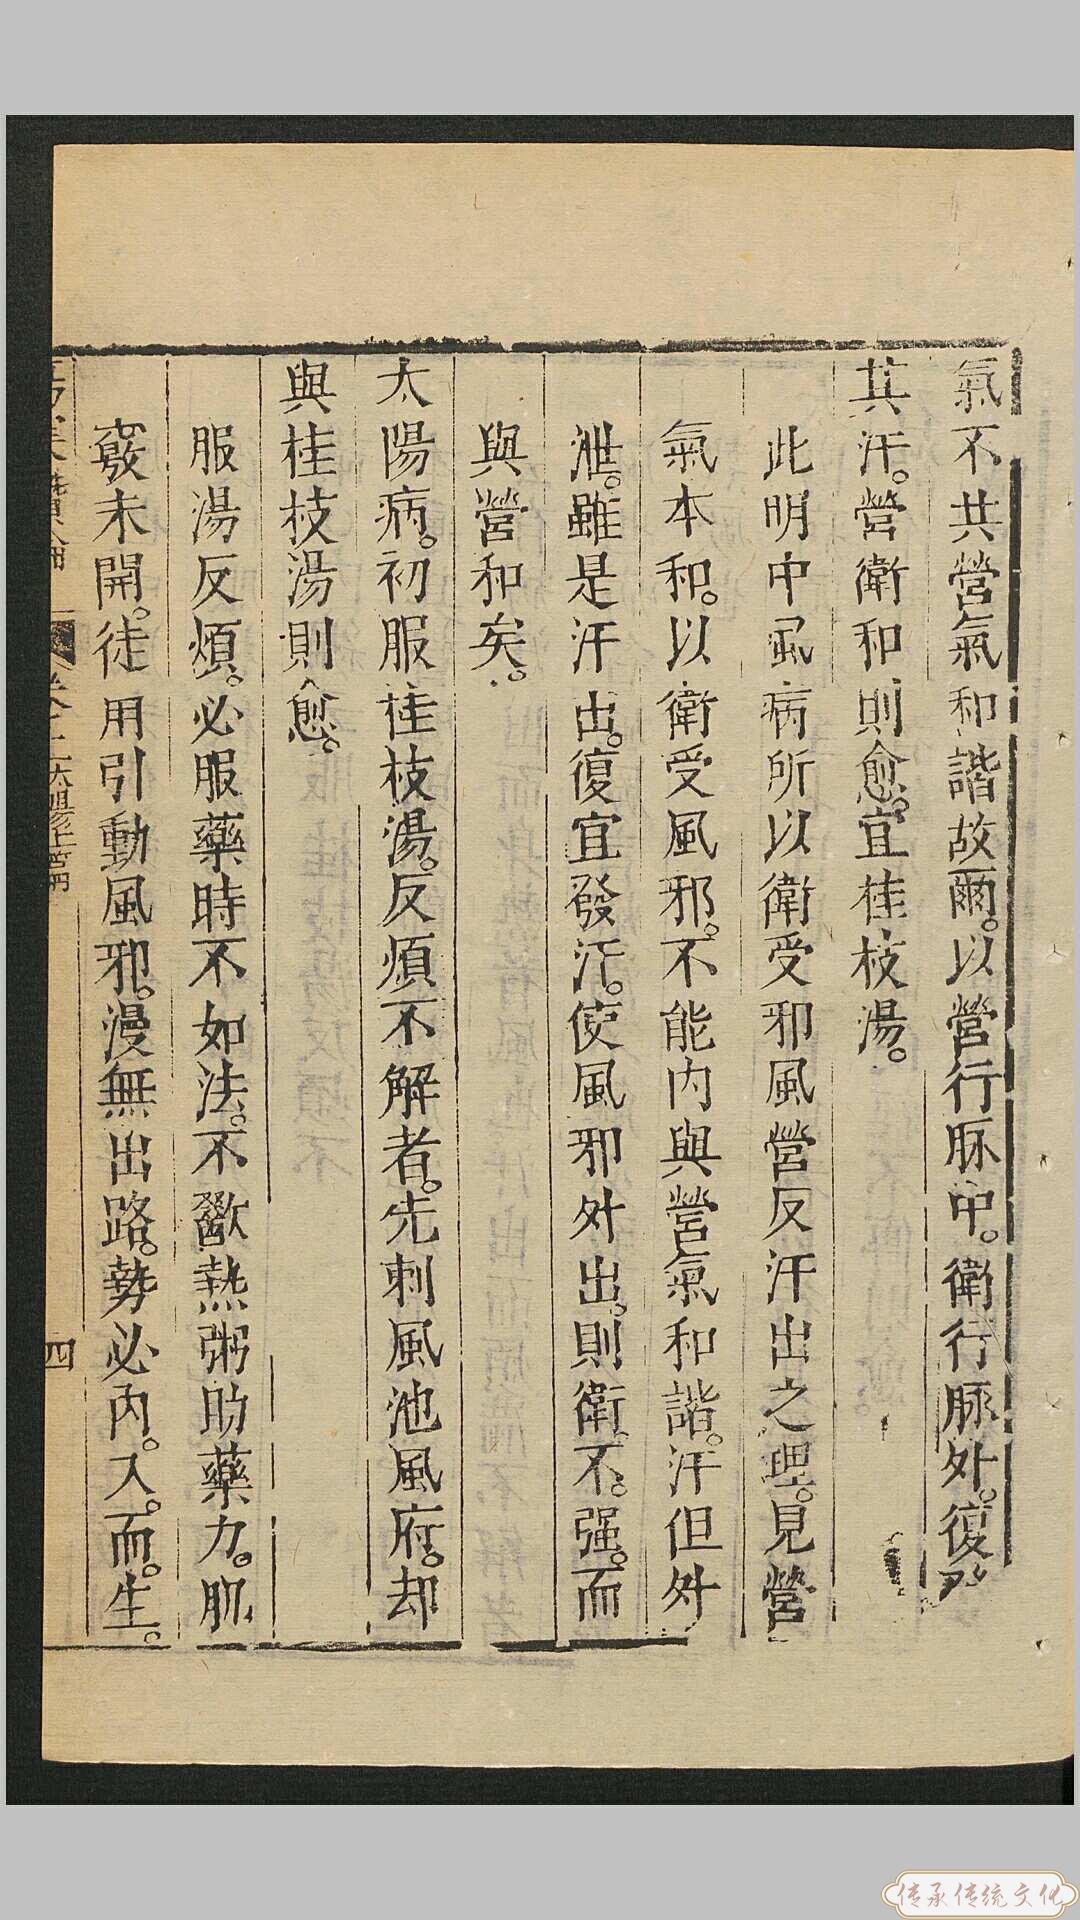 氣不共營氣和諧故爾。以營行脈中。衛行脈外。復發
其汗。營衛和則愈。宜桂枝湯。
此明中風病所以衛受邪風營反汗出之理。見營
氣本和。以衛受風邪。不能內與營氣和諧。汗但外
泄。雖是汗出。復宜發汗。使風邪外出。則衛不。强。而
與營和矣。
太陽病。初服桂枝湯。反煩不解者。先刺風池風府。却
與桂枝湯則愈。
服湯反煩。必服藥時不如法。不歠熱粥助藥力。肌
竅未開。徒用引動風邪。漫無出路。勢必內。入。而。生。
四
传承传统文化